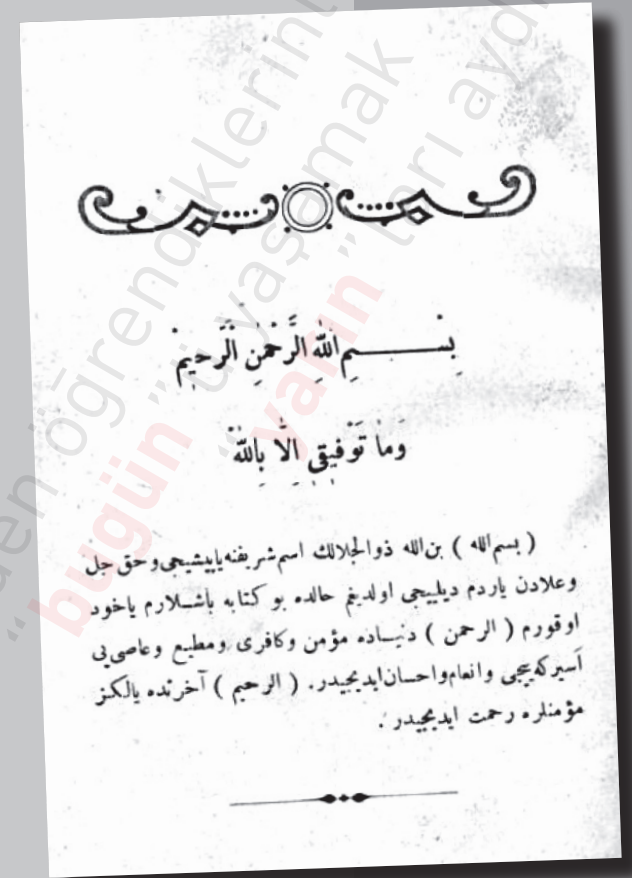 بِسْــــــمِ اللّٰهِ الرَّحْمٰنِ الرَّحِيمْ
وَمَا تَوْفِيقِى اِلَّا بِاللّٰهْ
( بسم الله ) بن الله ذوالجلالك اسم شريفنه ياپيشيجى وحق جل
وعلادن ياردم ديلييجى اولديغم حالده بو كتابه باشلارم ياخود
اوقورم ( الرحمن ) دنيـاده مؤمن وكافرى ومطيع وعاصى يى
أسيركه ييجى وانعام واحسان ايديجيدر. ( الرحيم ) آخرتده يالكز
مؤمنلره رحمت ايديجيدر .
den öğrendiklerini
“bugün” ü yaşamak
“yarın” ları aydı